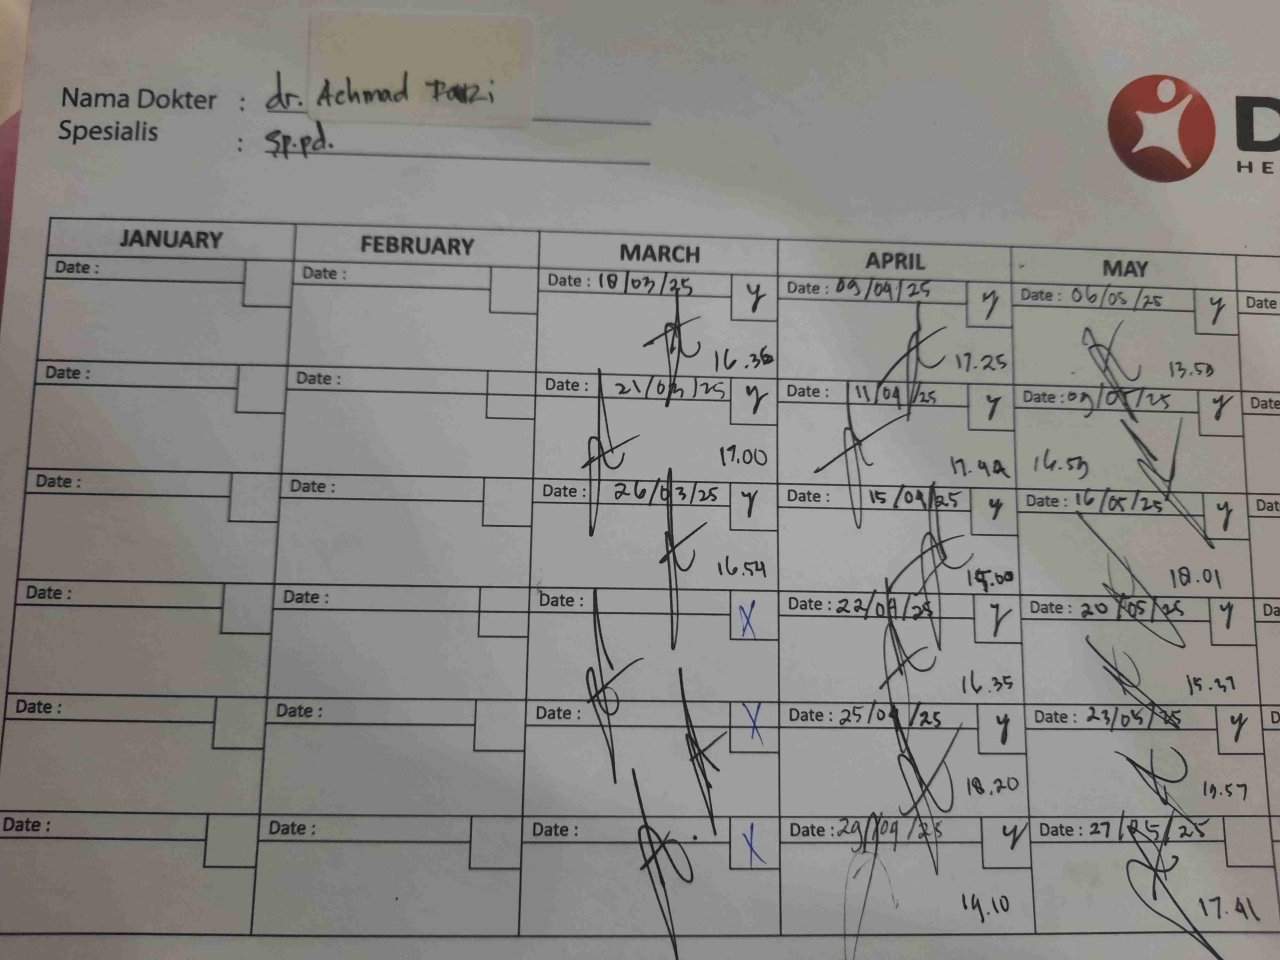 Nama Dokter : dr. Achmad Fauzi
Spesialis : Sp.pd.
D
HE
JANUARY FEBRUARY MARCH APRIL MAY
Date : Date : Date : 18/03/25 y Date : 09/04/25 y Date : 06/05/25 y Date
16.36 17.25 13.50
Date : Date : Date : 21/03/25 y Date : 11/04/25 y Date : 09/05/25 y Date
17.00 17.42 16.53
Date : Date : Date : 26/03/25 y Date : 15/04/25 y Date : 16/05/25 y Dat
16.54 18.01
Date : Date : Date : X Date : 22/04/25 y Date : 20/05/25 y Da
16.35 15.37
Date : Date : Date : X Date : 25/04/25 y Date : 23/05/25 y D
18.20 19.57
Date : Date : Date : X Date : 29/04/25 y Date : 27/05/25
19.10 17.41